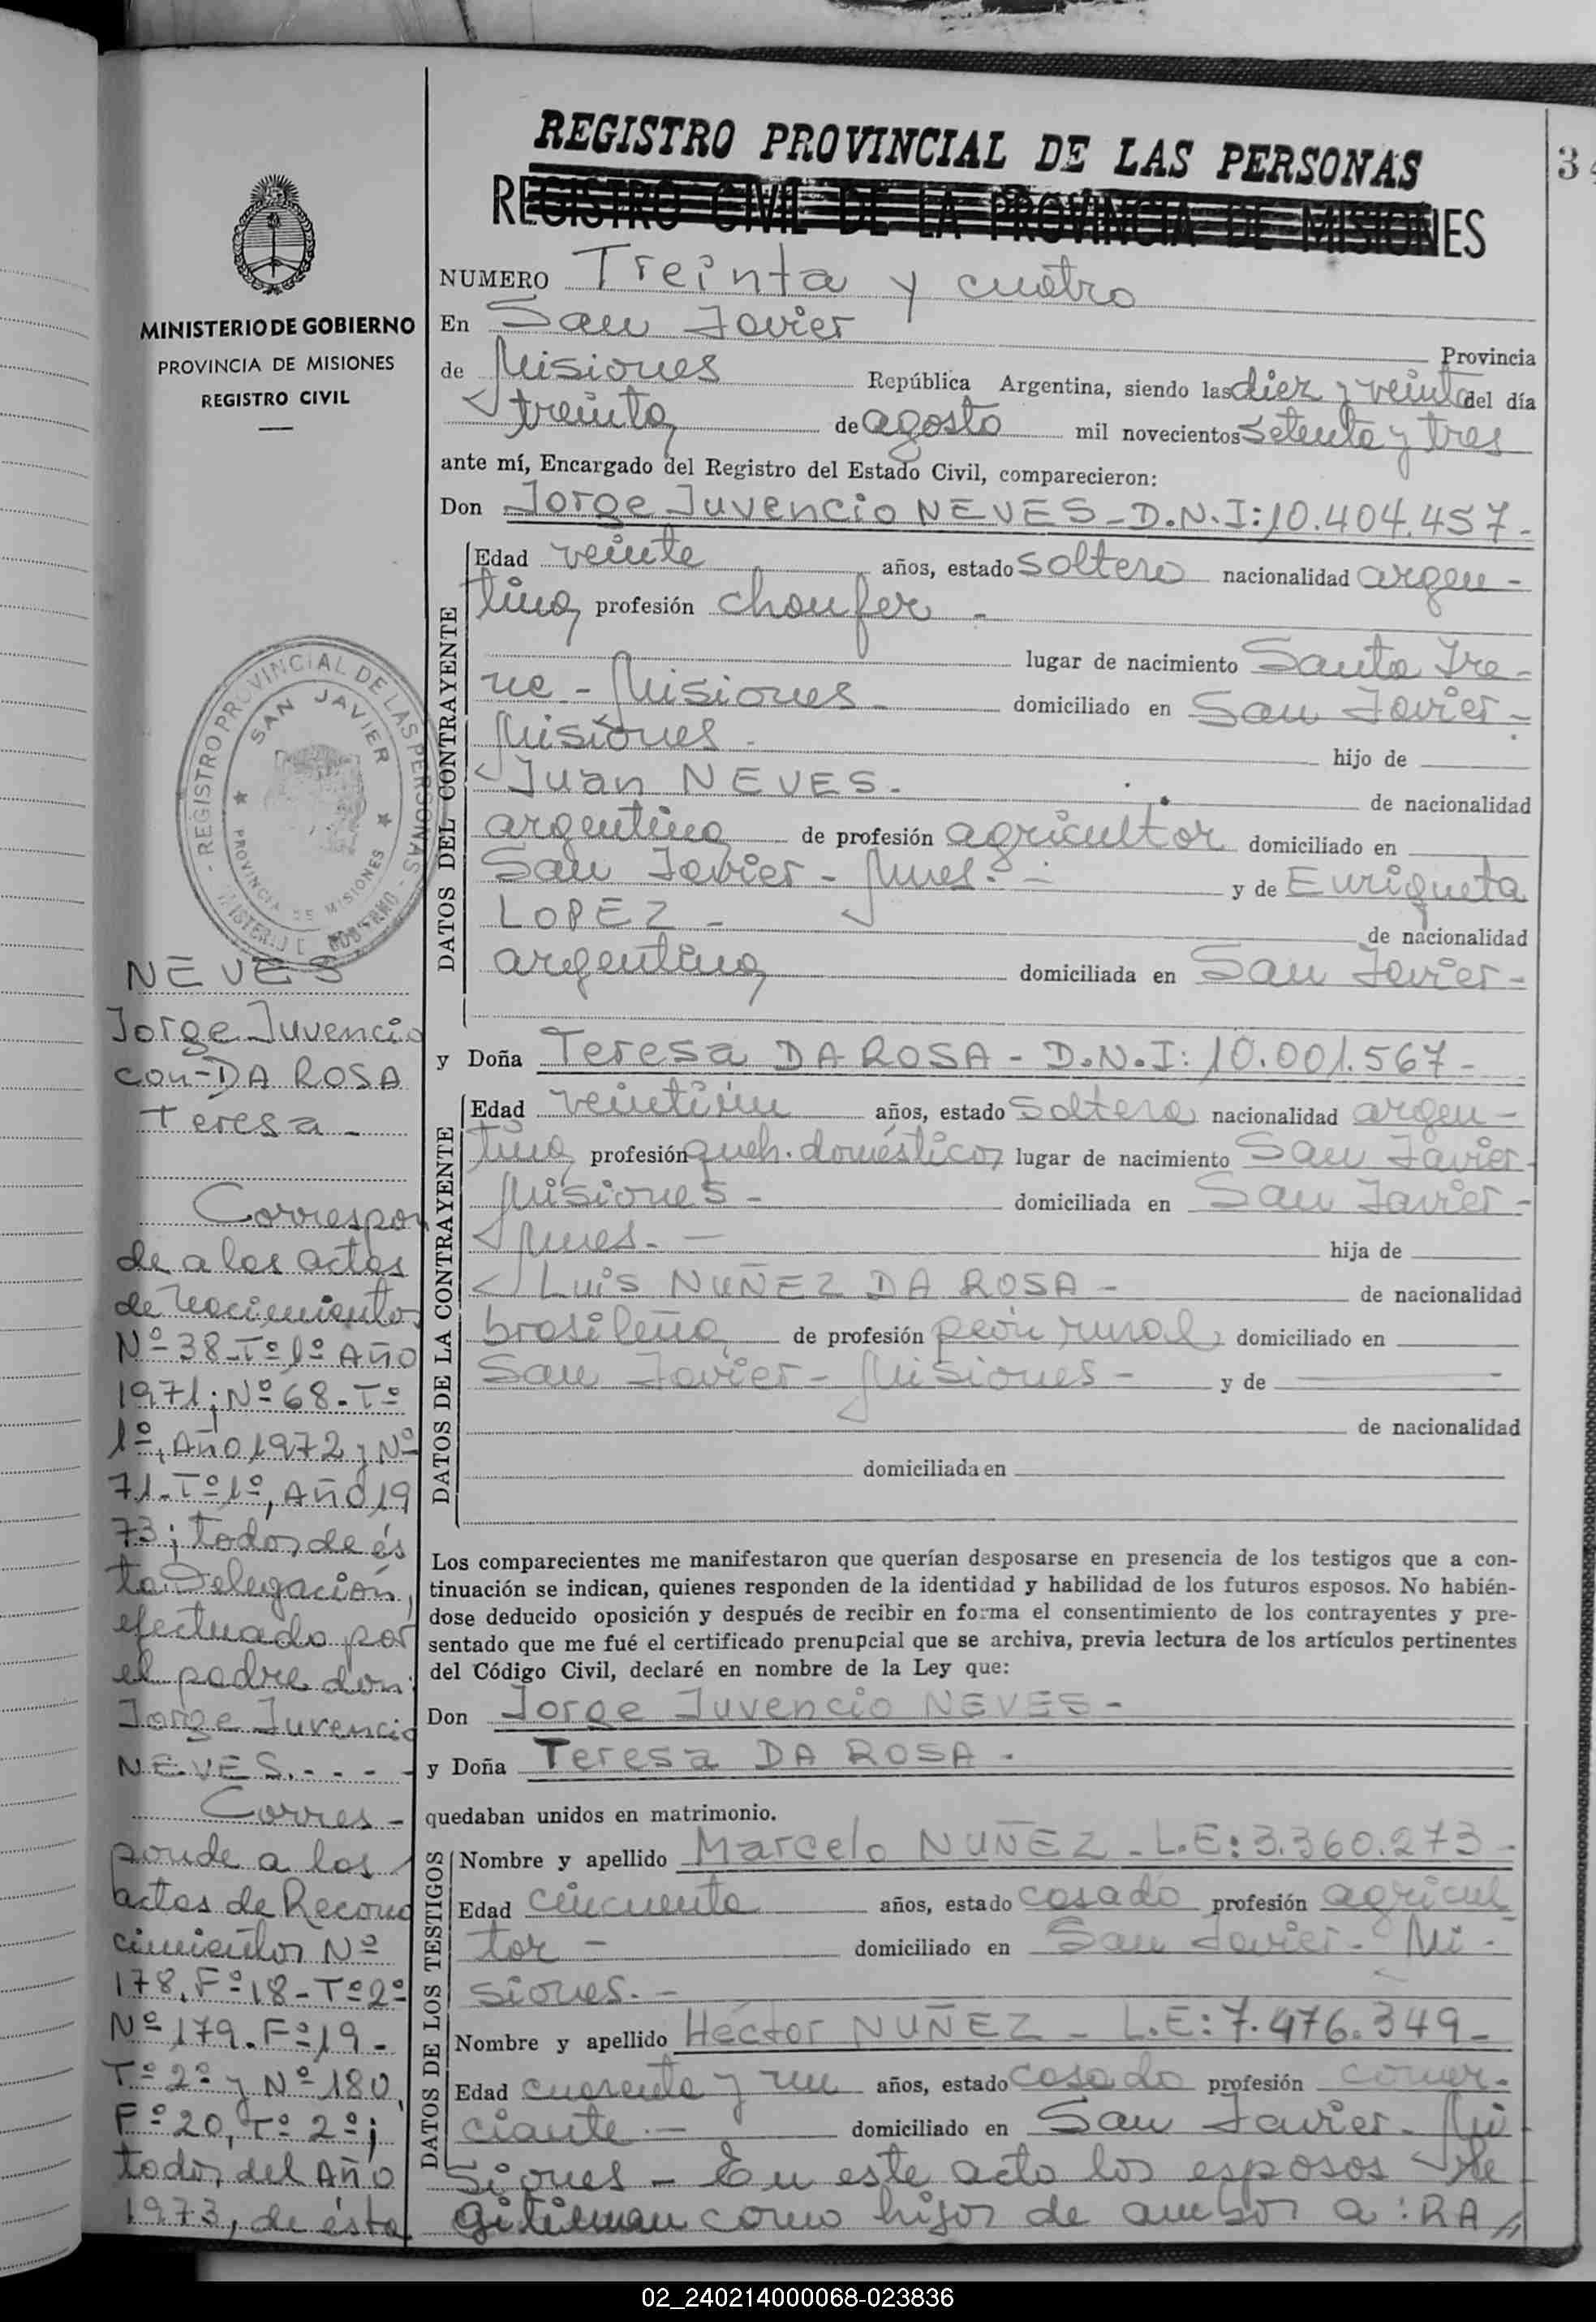 REGISTRO PROVINCIAL DE LAS PERSONAS
REGISTRO CIVIL DE LA PROVINCIA DE MISIONES
34
MINISTERIO DE GOBIERNO
PROVINCIA DE MISIONES
REGISTRO CIVIL
NUMERO Treinta y cuatro
En San Javier Provincia
de Misiones República Argentina, siendo las diez y veinte del día
treinta de agosto mil novecientos setenta y tres
ante mí, Encargado del Registro del Estado Civil, comparecieron:
Don Jorge Juvencio NEVES - D.N.I: 10.404.457-
DATOS DEL CONTRAYENTE
Edad veinte años, estado soltero nacionalidad argen-
tina, profesión choufer -
lugar de nacimiento Santa Ire-
ne - Misiones - domiciliado en San Javier -
Misiones - hijo de
Juan NEVES - de nacionalidad
argentina de profesión agricultor domiciliado en
San Javier - Mnes. - y de Enriqueta
LOPEZ - de nacionalidad
argentina, domiciliada en San Javier -
y Doña Teresa DA ROSA - D.N.I: 10.001.567-
DATOS DE LA CONTRAYENTE
Edad veintiún años, estado soltera nacionalidad argen-
tina, profesión queh. domésticos lugar de nacimiento San Javier-
Misiones - domiciliada en San Javier -
Mnes. - hija de
Luis NUÑEZ DA ROSA - de nacionalidad
brasileña de profesión peón rural, domiciliado en
San Javier - Misiones - y de -
de nacionalidad
domiciliada en
Los comparecientes me manifestaron que querían desposarse en presencia de los testigos que a con-
tinuación se indican, quienes responden de la identidad y habilidad de los futuros esposos. No habién-
dose deducido oposición y después de recibir en forma el consentimiento de los contrayentes y pre-
sentado que me fué el certificado prenupcial que se archiva, previa lectura de los artículos pertinentes
del Código Civil, declaré en nombre de la Ley que:
Don Jorge Juvencio NEVES -
y Doña Teresa DA ROSA -
quedaban unidos en matrimonio.
DATOS DE LOS TESTIGOS
Nombre y apellido Marcelo NUÑEZ - L.E: 3.360.273 -
Edad cincuenta años, estado casado profesión agricul
tor - domiciliado en San Javier - Mi-
siones. -
Nombre y apellido Héctor NUÑEZ - L.E: 7.476.349 -
Edad cuarenta y un años, estado casado profesión comer-
ciante. - domiciliado en San Javier - Mi
siones - En este acto los esposos le
gitiman como hijos de ambos a : RA //
REGISTRO PROVINCIAL DE LAS PERSONAS
SAN JAVIER
PROVINCIA DE MISIONES
MINISTERIO DE GOBIERNO
NEVES
Jorge Juvencio
con - DA ROSA
Teresa -
Correspon
de a los actas
de nacimientos
Nº 38 - Tº 1º Año
1971; Nº 68 - Tº
1º, Año 1972 y Nº
71 - Tº 1º, Año 19
73; todos de és
ta Delegación,
efectuado por
el padre don:
Jorge Juvencio
NEVES. - - - -
Corres -
ponde a los
actas de Recono
cimientos Nº
178, Fº 18 - Tº 2º
Nº 179 - Fº 19 -
Tº 2º y Nº 180,
Fº 20, Tº 2º;
todos del Año
1973, de ésta
02_240214000068-023836